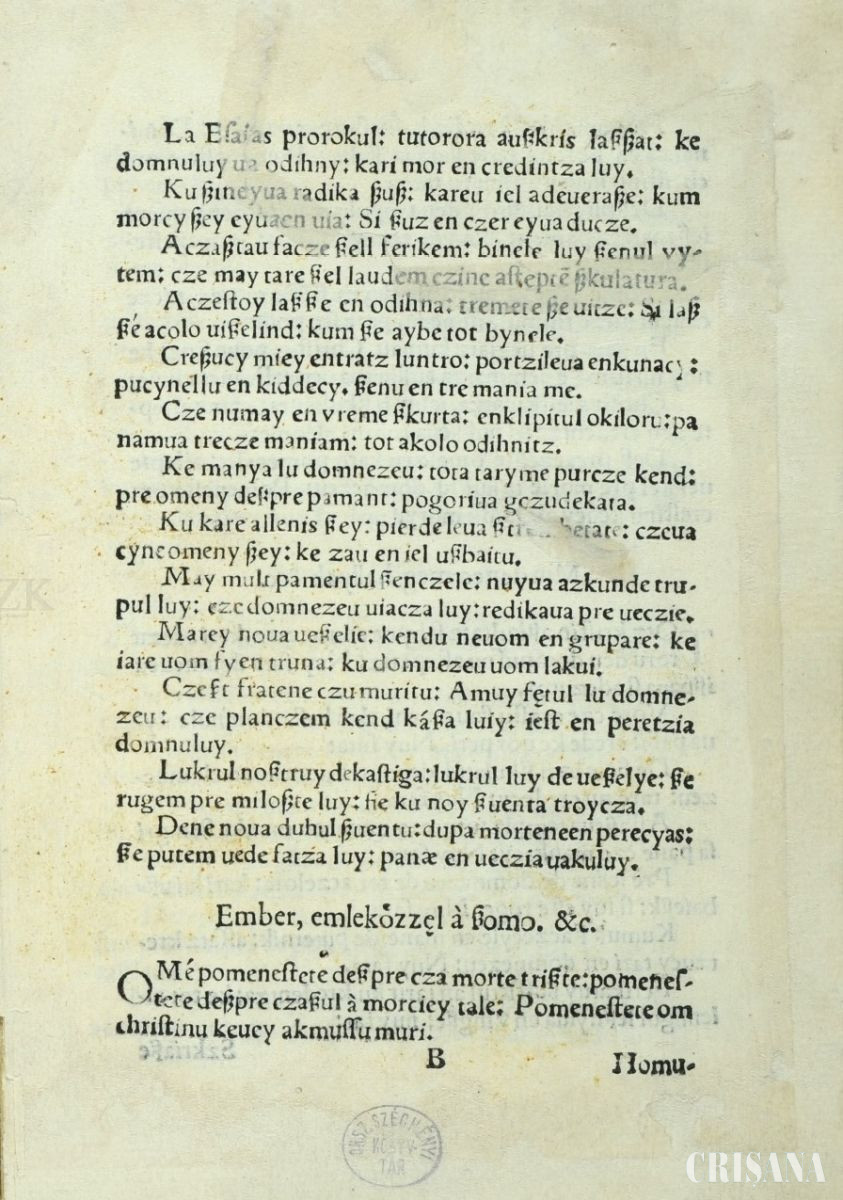 La Esaias prorokul: tutorora außkris laßßat: ke
domnuluy ua odihny: kari mor en credintza luy.
Ku ßineyua radika ßuß: kareu iel adeueraße: kum
morcy ßey eyuaen uia: Si ßuz en czer eyua ducze.
Aczaßtau facze ßell ferikem: binele luy ßenul vy-
tem: cze may tare ßel laudem czine asteptē ßkulatura.
Aczestoy laßße en odihna: tremete ße uitze: Si laß
ße acolo uißelind: kum ße aybe tot bynele.
Creßucy miey entratz luntro: portzileua enkunacy:
pucynellu en kiddecy. ßenu en tre mania me.
Cze numay en vreme ßkurta: enklipitul okiloru: pa
namua trecze maniam: tot akolo odihnitz.
Ke manya lu domnezeu: tota taryme purcze kend:
pre omeny deßpre pamant: pogoriua gezudekata.
Ku kare allenis ßey: pierdeleua betate: czeua
cyneomeny ßey: ke zau en iel ußbaitu.
May mult pamentul ßenczele: nuyua azkunde tru-
pul luy: cze domnezeu uiacza luy: redikaua pre ueczie.
Marey noua ueßelie: kendu neuom en grupare: ke
iare uom fyen truna: ku domnezeu uom lakui.
Czeßt fratene czu muritu: Amuy fętul lu domne-
zeu: cze planczem kend káßa luiy: iest en peretzia
domnuluy.
Lukrul nostruy dekastiga: lukrul luy de ueßelye: ße
rugem pre miloßte luy: fie ku noy ßuenta troycza.
Dene noua duhul ßuentu: dupa morteneen perecyas:
ße putem uede fatza luy: panæ en ueczia uakuluy.
Ember, emlekőzzęl à ßomo. &c.
OMé pomenestete deßpre cza morte trißte: pomenes-
tete deßpre czaßul à morciey tale: Pomenestete om
christinu keucy akmussu muri.
B Homu-
ORSZ. SZÉCHÉNYI
KÖNYV-
TÁR
CRIȘANA
ZK